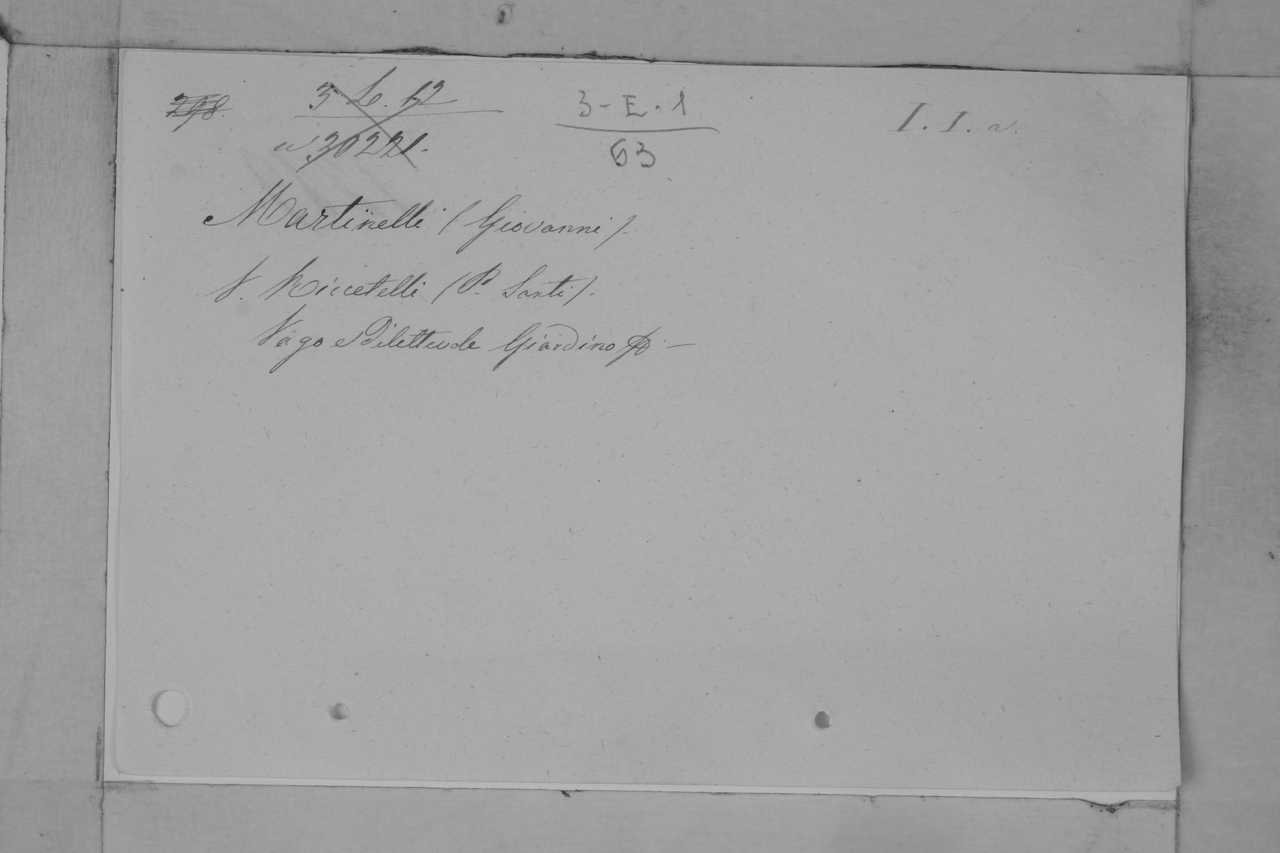 298. 3 L. 12 3-E-1 I. I. a.
n. 30221. 63
Martinelli (Giovanni).
V. Riccetelli (P. Santi).
Vago e Dilettevole Giardino &c. —